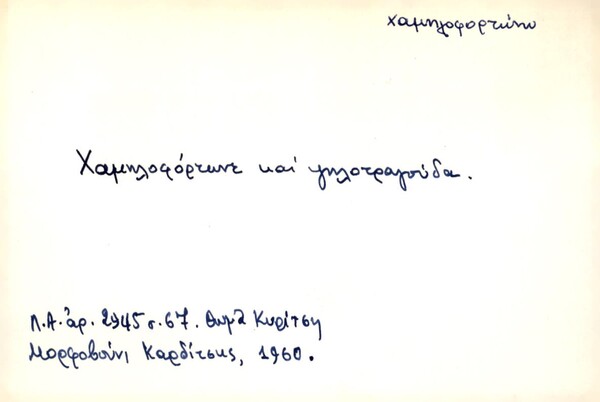 χαμηλοφορτώνω
Χαμηλοφόρτωνε καί ψηλοτραγούδα.
Λ.Α. ἀρ. 2945 σ. 67. Θωμᾶ Κυρίτση
Μορφοβούνι Καρδίτσης, 1960.